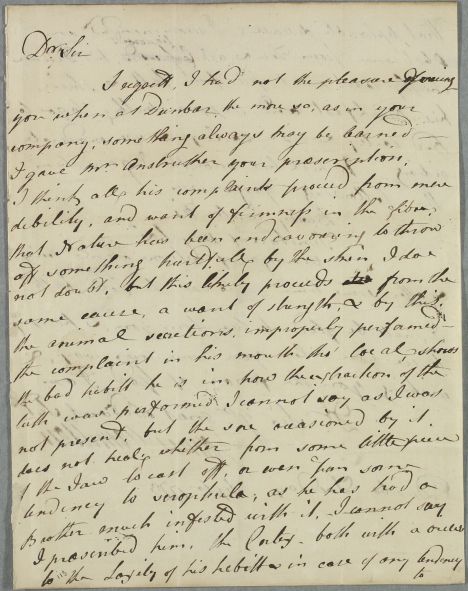 Dr Sir
I regrett, I had not the pleasure of seeing
you when at Dunbar, the more so, as in your
company, something always may be learned
I gave Mr. Anstruther your prescription,
I think all his complaints proceed from mere
debility, and want of firmness in the fibres,
that Nature has been endeavouring to throw
off something hurtfull by the skin, I doe
not doubt, but this likely proceeds from the
same cause, a want of strength, & by this,
the animal secretions, improperly performed
the complaint in his mouth tho' local, shows
the bad habitt he is in, how the extraction of the
tuth was performed I cannot say as I was
not present, but the sore occasioned by it.
does not heal, whether from some little piece
of the Jaw to cast off, or even from some
tendency to scrophula, as he has had a
Brother much infested with it, I cannot say
I prescribed him, the Cortex both with a
to the laxity of his habitt & in case of any tendency
to